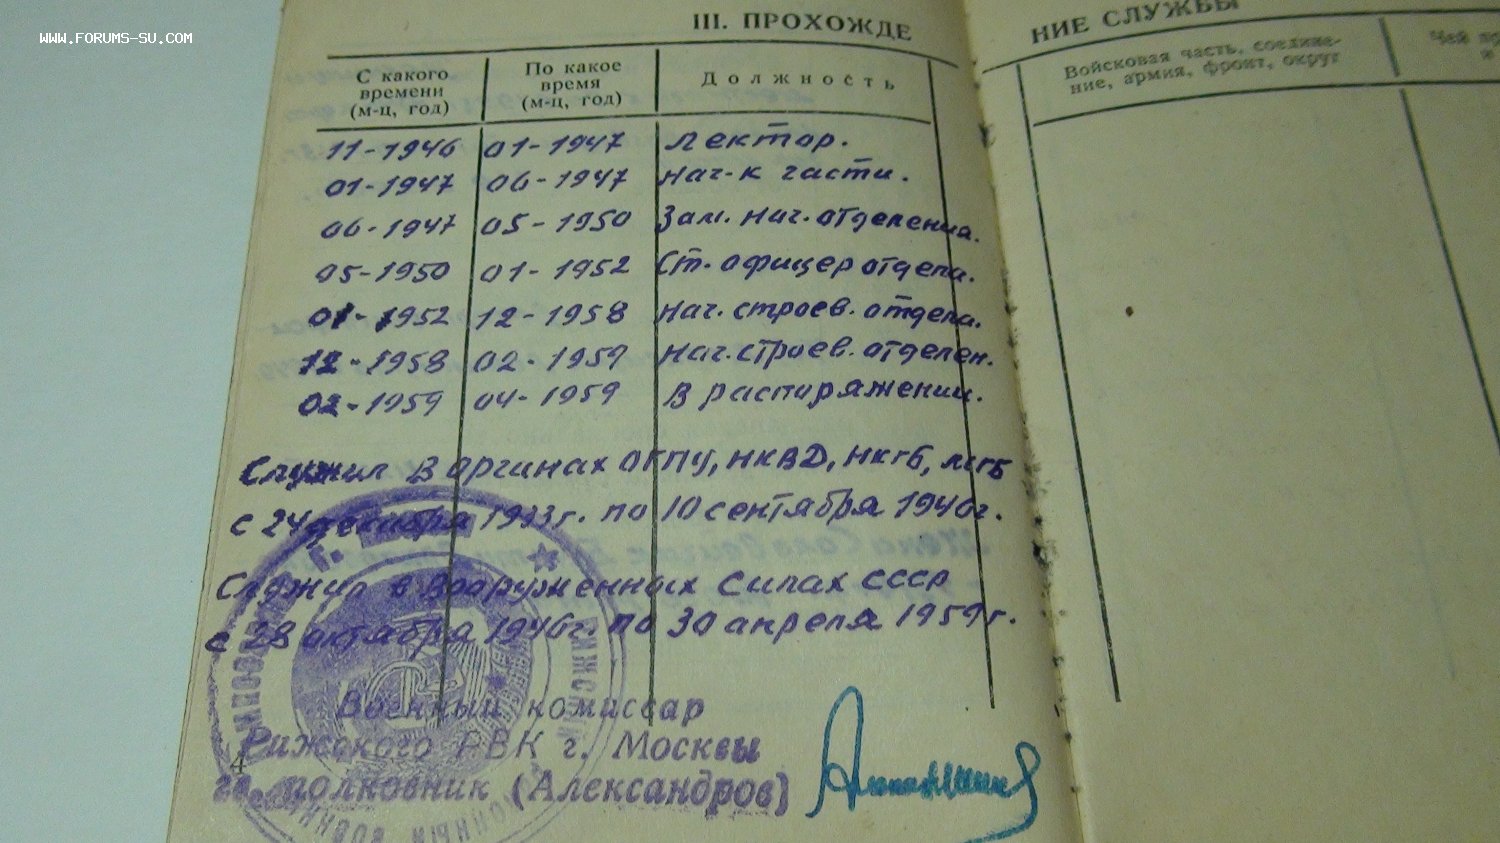 WWW.FORUMS-SU.COM
III. ПРОХОЖДЕ
НИЕ СЛУЖБЫ
С какого времени (м-ц, год) По какое время (м-ц, год) Должность
Войсковая часть, соедине-
ние, армия, фронт, округ
Чей
и
11-1946 01-1947 Лектор.
01-1947 06-1947 Нач-к части.
06-1947 05-1950 Зам. нач. отделения.
05-1950 01-1952 Ст. офицер отдела.
01-1952 12-1958 Нач. строев. отдела.
12-1958 02-1959 Нач. строев. отделен.
02-1959 04-1959 В распоряжении.
Служил в органах ОГПУ, НКВД, НКГБ, МГБ
с 24 декабря 1933 г. по 10 сентября 1946 г.
Служил в Вооруженных Силах СССР
с 28 октября 1946 г. по 30 апреля 1959 г.
Военный комиссар
Рижского РВК г. Москвы
полковник (Александров)
4